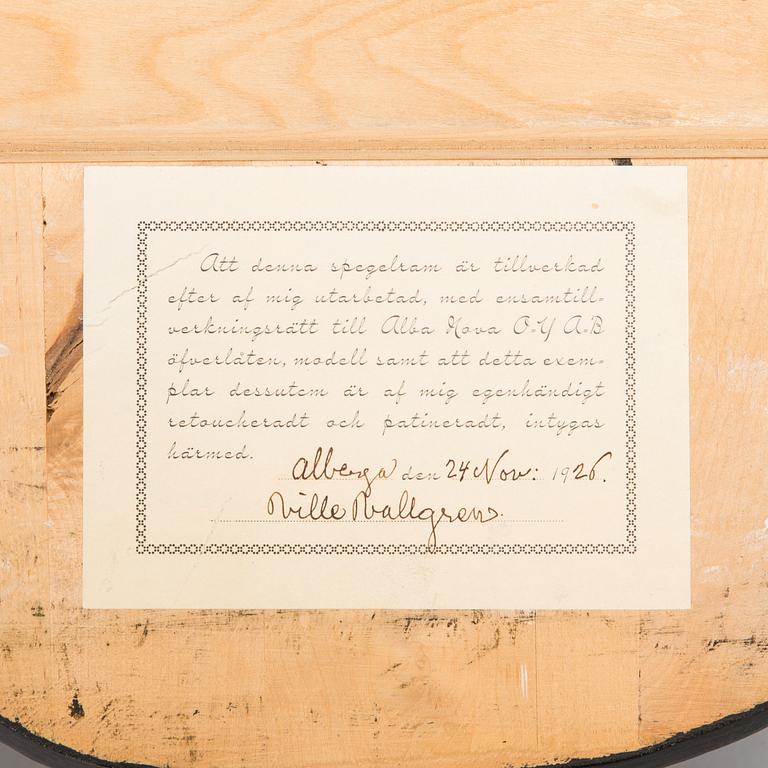 Att denna spegelram är tillverkad
efter af mig utarbetad, med ensamtill-
verkningsrätt till Alba Nova O-Y A-B
öfverlåten, modell samt att detta exem-
plar dessutem är af mig egenhändigt
retoucheradt och patineradt, intygas
härmed.
Alberga den 24 Nov: 1926.
Ville Vallgren.